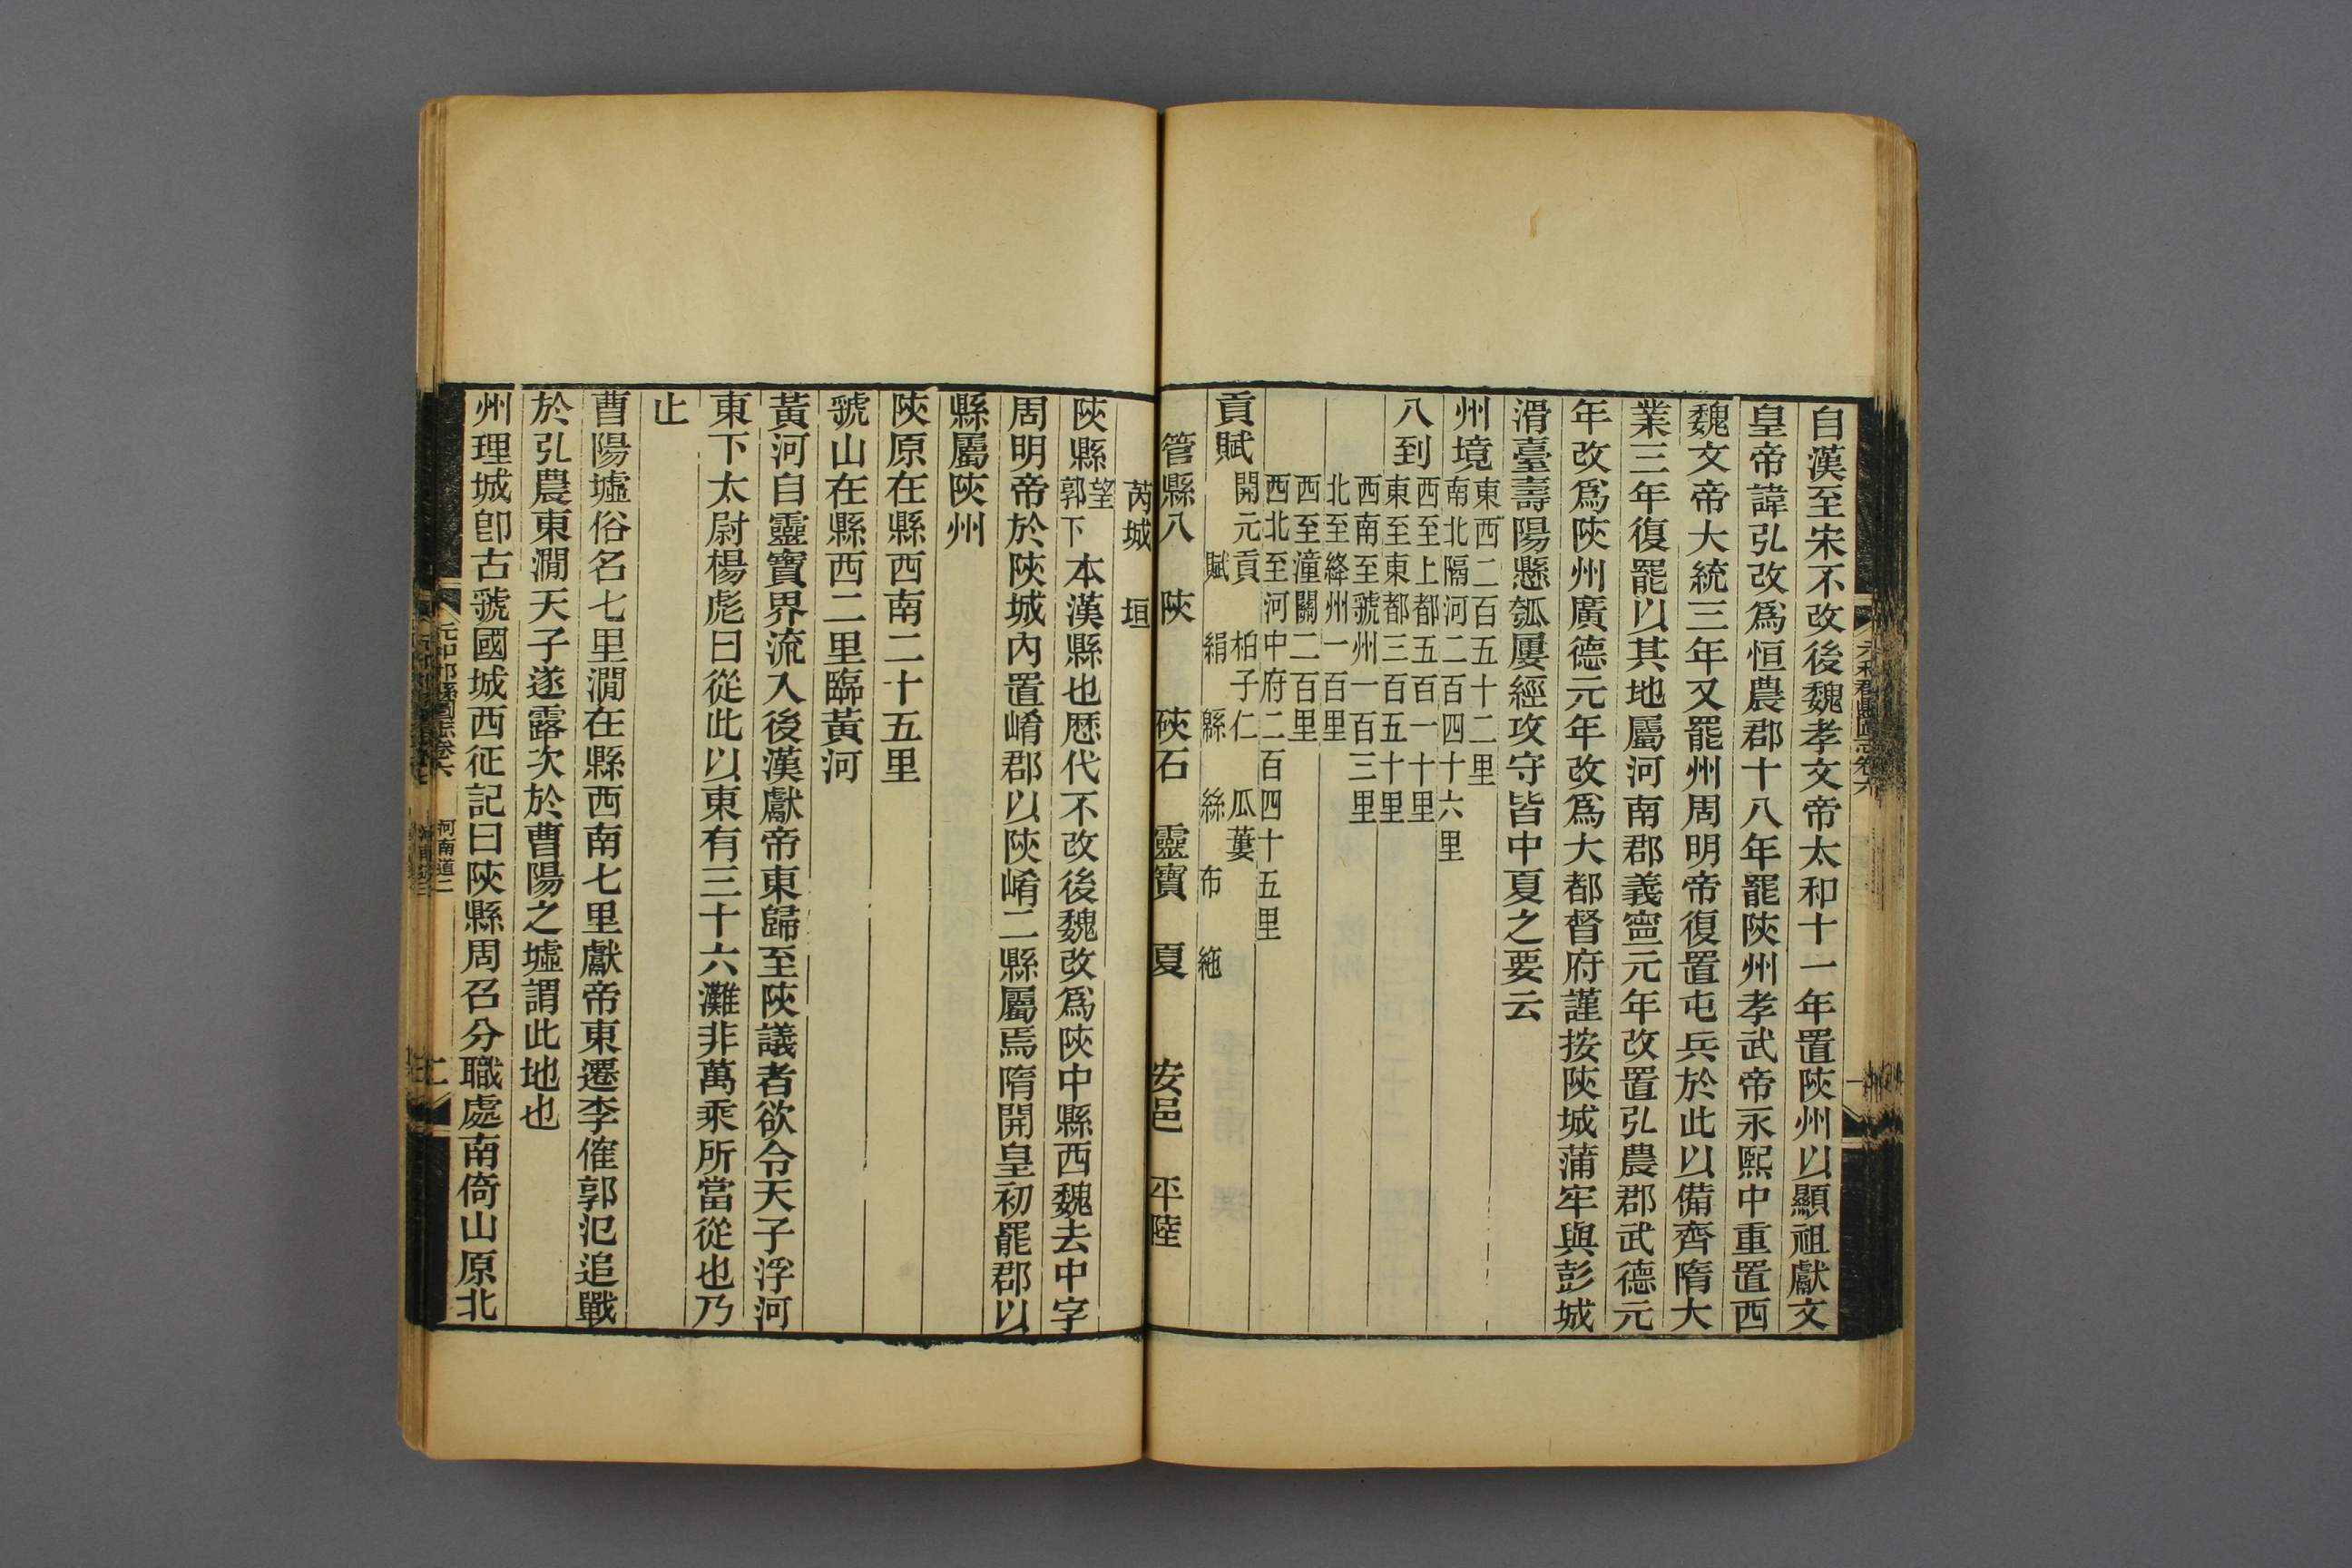 自漢至宋不改後魏孝文帝太和十一年置陜州以顯祖獻文
皇帝諱弘改爲恒農郡十八年罷陜州孝武帝永熙中重置西
魏文帝大統三年又罷州周明帝復置屯兵於此以備齊隋大
業三年復罷以其地屬河南郡義寧元年改置弘農郡武德元
年改爲陜州廣德元年改爲大都督府謹按陜城蒲牢與彭城
滑臺壽陽懸瓠屢經攻守皆中夏之要云
州境東西二百五十二里
南北隔河二百四十六里
八到西至上都五百一十里
東至東都三百五十里
西南至虢州一百三里
北至絳州一百里
西至潼關二百里
西北至河中府二百四十五里
貢賦開元貢 柏子仁 瓜蔞
賦 絹 緜 絲 布 絁
管縣八 陜 硤石 靈寶 夏 安邑 平陸
芮城 垣
陜縣望郭下 本漢縣也歴代不改後魏改爲陜中縣西魏去中字
周明帝於陜城內置崤郡以陜崤二縣屬焉隋開皇初罷郡以
縣屬陜州
陜原在縣西南二十五里
虢山在縣西二里臨黃河
黃河自靈寶界流入後漢獻帝東歸至陜議者欲令天子浮河
東下太尉楊彪曰從此以東有三十六灘非萬乘所當從也乃
止
曹陽墟俗名七里澗在縣西南七里獻帝東遷李傕郭汜追戰
於弘農東澗天子遂露次於曹陽之墟謂此地也
州理城卽古虢國城西征記曰陜縣周召分職處南倚山原北
元和郡縣圖志卷六 河南道二 二